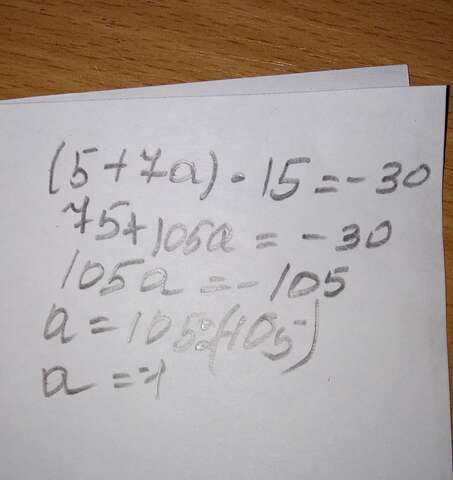 (5+7a)·15=-30
75+105a=-30
105a=-105
a=105:(-105)
a=-1